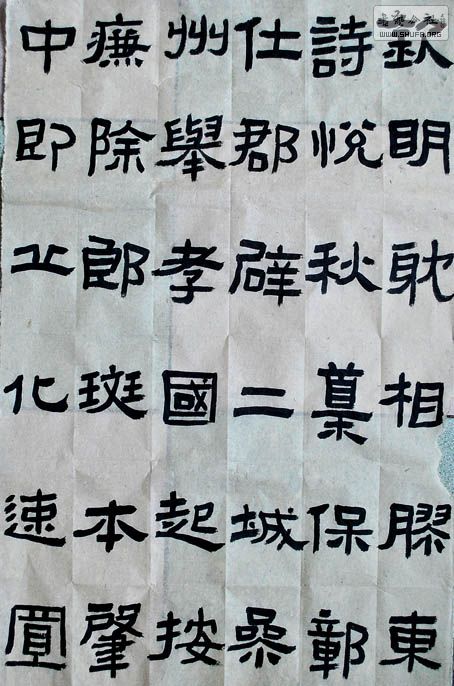 欽明耽相膠東
詩悅秋保鄣
仕郡辟二城參
州舉孝國起按
廉除郎斑本肇
中即丘化速置
WWW.SHUFA.ORG